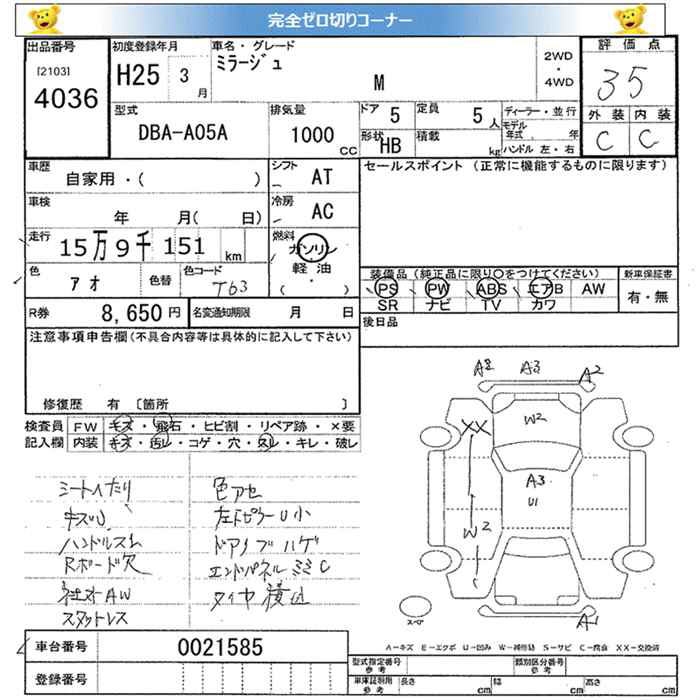 完全ゼロ切りコーナー
出品番号
[2103]
4036
初度登録年月
H25 3 月
車名・グレード
ミラージュ
M
2WD
・
4WD
評価点
35
型式
DBA-A05A
排気量
1000 CC
ドア 5
定員 5 人
形状 HB
積載 kg
ディーラー・並行
モデル年式 年
ハンドル 左・右
外装 内装
C C
車歴
自家用・( )
シフト
AT
セールスポイント (正常に機能するものに限ります)
車検
年 月( 日)
冷房
AC
走行
15万9千151 km
燃料
ガソリン
軽油
( ・ )
色
アオ
色替
色コード
T63
装備品(純正品に限り○をつけてください)
PS PW ABS エアB AW
SR ナビ TV カワ
新車保証書
有・無
R券
8,650 円
名変通知期限 月 日
後日品
注意事項申告欄(不具合内容等は具体的に記入して下さい)
修復歴 有 [箇所 ]
検査員 FW キズ・飛石・ヒビ割・リペア跡・×要
記入欄 内装 キズ・汚レ・コゲ・穴・スレ・キレ・破レ
シートヘタリ
色アセ
キスレ
左下ピラーU小
ハンドルスレ
ドアノブハゲ
Rボード欠
エンドパネルミミC
社外AW
タイヤ積込
スタットレス
A2 A3 A2
W2
XX
A3
U1
W2
A1
スペア
A-キズ E-エクボ U-凹み W-補修跡 S-サビ C-腐食 XX-交換済
車台番号
0021585
登録番号
型式指定番号
参考
類別区分番号
参考
車庫証明用
参考
長さ cm
幅 cm
高さ cm